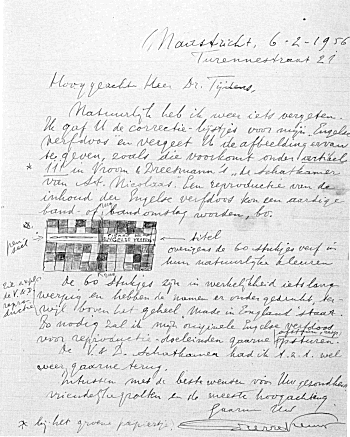 Maastricht, 6-2-1956
Turennestraat 21
Hooggeacht Heer Dr. Tijssens,
Natuurlijk heb ik weer iets vergeten.
Ik gaf U de correctie-lijstjes voor mijn Engelse
verfdoos en vergeet U de afbeelding ervan
te geven, zoals die voorkomt onder artikel
* 111 in Vroom & Dreesmann's "de Schatkamer
van St. Nicolaas. Een reproductie van de
inhoud der Engelse verfdoos kon een aardige
band- of bandomslag worden, bv.
titel
overigens de 60 stukjes verf in
hun natuurlijke kleuren
De 60 stukjes zijn in werkelijkheid iets lang-
werpig en hebben de namen er onder gedrukt, ter-
wijl boven het geheel "Made in England" staat.
Zo nodig zal ik mijn originele Engelse verfdoos
voor reproductie-doeleinden gaarne opsturen.
De V. & D. Schatkamer had ik t.z.t. wel
weer gaarne terug.
Intussen met de beste wensen voor Uw gezondheid
vriendelijke groeten en de meeste hoogachting
Gaarne Uw
Pierre Kemp
* bij het groene papiertje